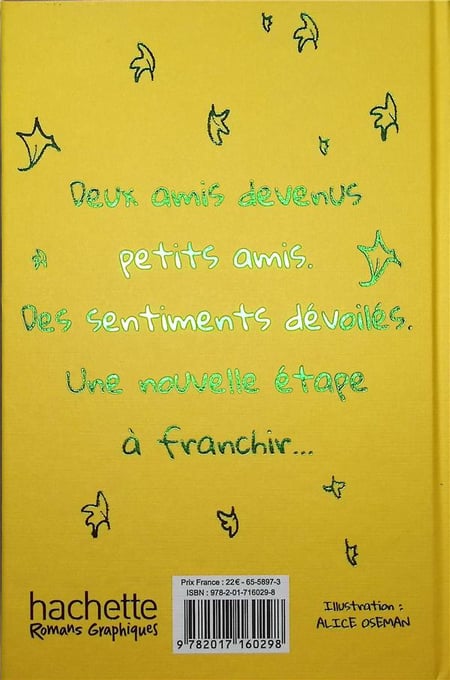 Deux amis devenus
petits amis.
Des sentiments dévoilés.
Une nouvelle étape
à franchir...
hachette
Romans Graphiques
Prix France : 22€ - 65-5897-3
ISBN : 978-2-01-716029-8
9 782017 160298
Illustration :
ALICE OSEMAN